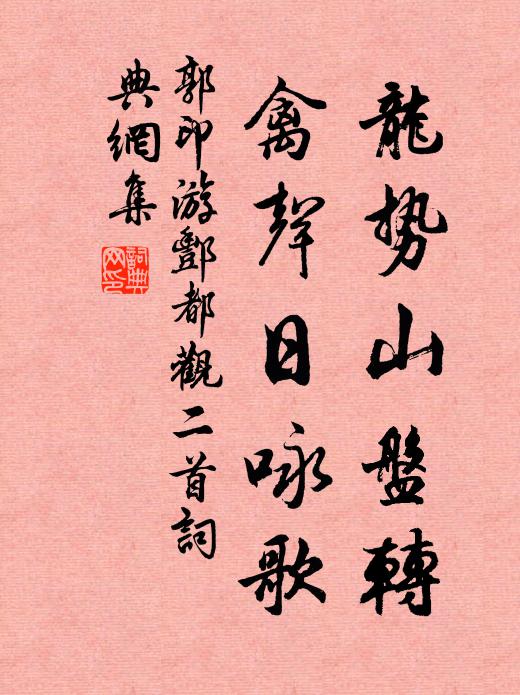 龍势山盤轉
禽聲日咏歌
郭印游酆都觀二首詞
典網集
詞典
网印